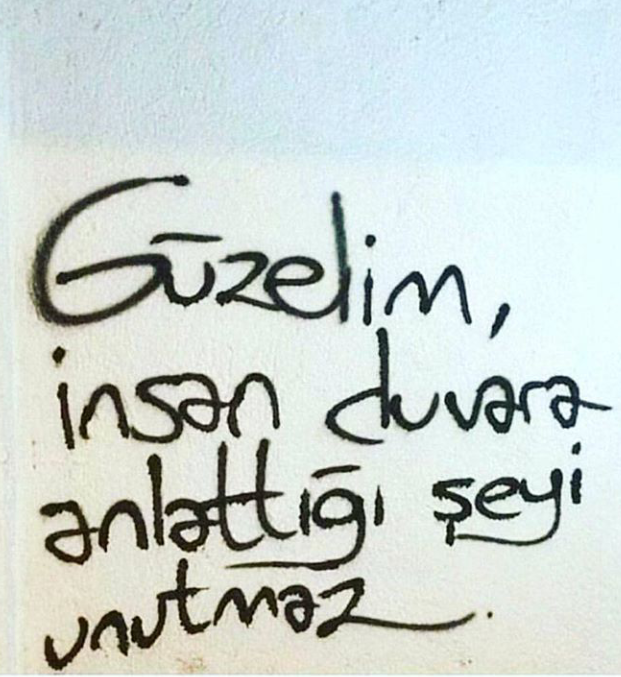 Güzelim,
insan duvara
anlattığı şeyi
unutmaz.